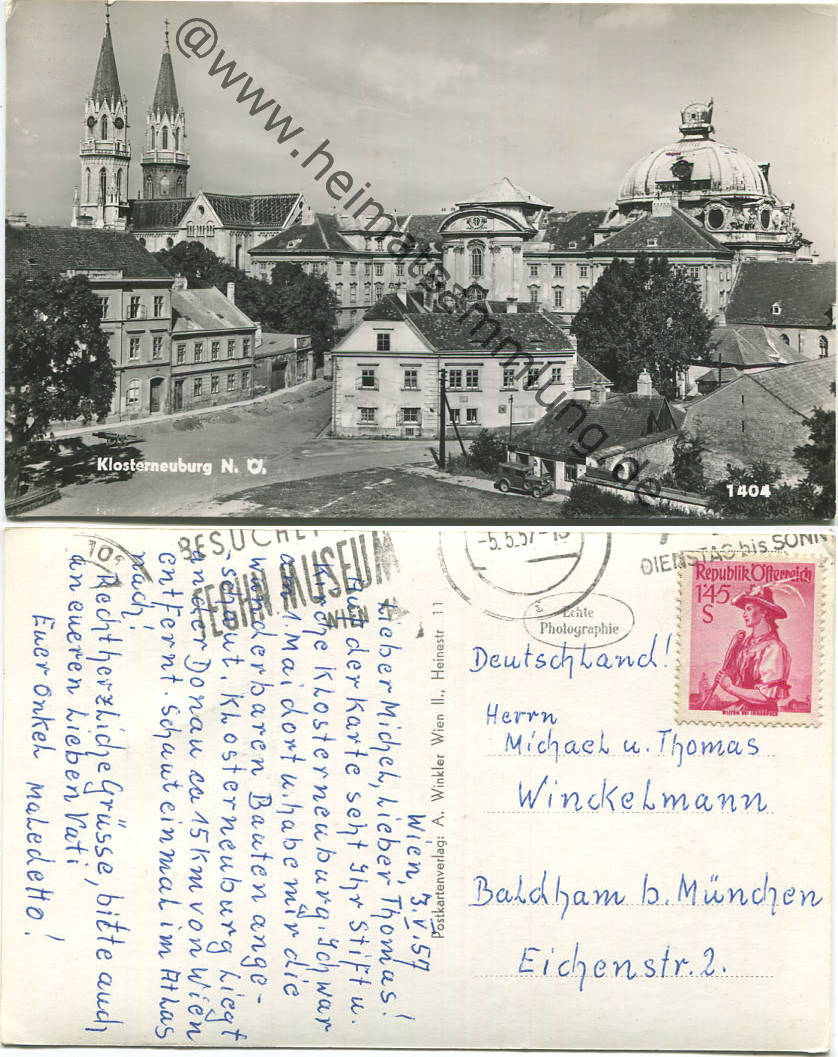 @www.heimatsammlung.de
Klosterneuburg N. Ö.
1404
Wien, 3.V.57
Lieber Michel, Lieber Thomas!
Auf der Karte seht Ihr Stift u.
Kirche Klosterneuburg. Ich war
am 1. Mai dort u. habe mir die
wunderbaren Bauten ange-
schaut. Klosterneuburg liegt
an der Donau ca 15 Km von Wien
entfernt. Schaut einmal im Atlas
nach!
Recht herzliche Grüsse, bitte auch
an eueren Lieben Vati
Euer Onkel Maledetto!
BESUCHET
TECHN. MUSEUM
WIEN
Postkartenverlag: A. Winkler Wien II., Heinestr 11
-5.5.57-
DIENSTAG bis SONN
Echte
Photographie
Republik Österreich
1'45
S
WILTEN BEI INNSBRUCK
Deutschland!
Herrn
Michael u. Thomas
Winckelmann
Baldham b. München
Eichenstr. 2.